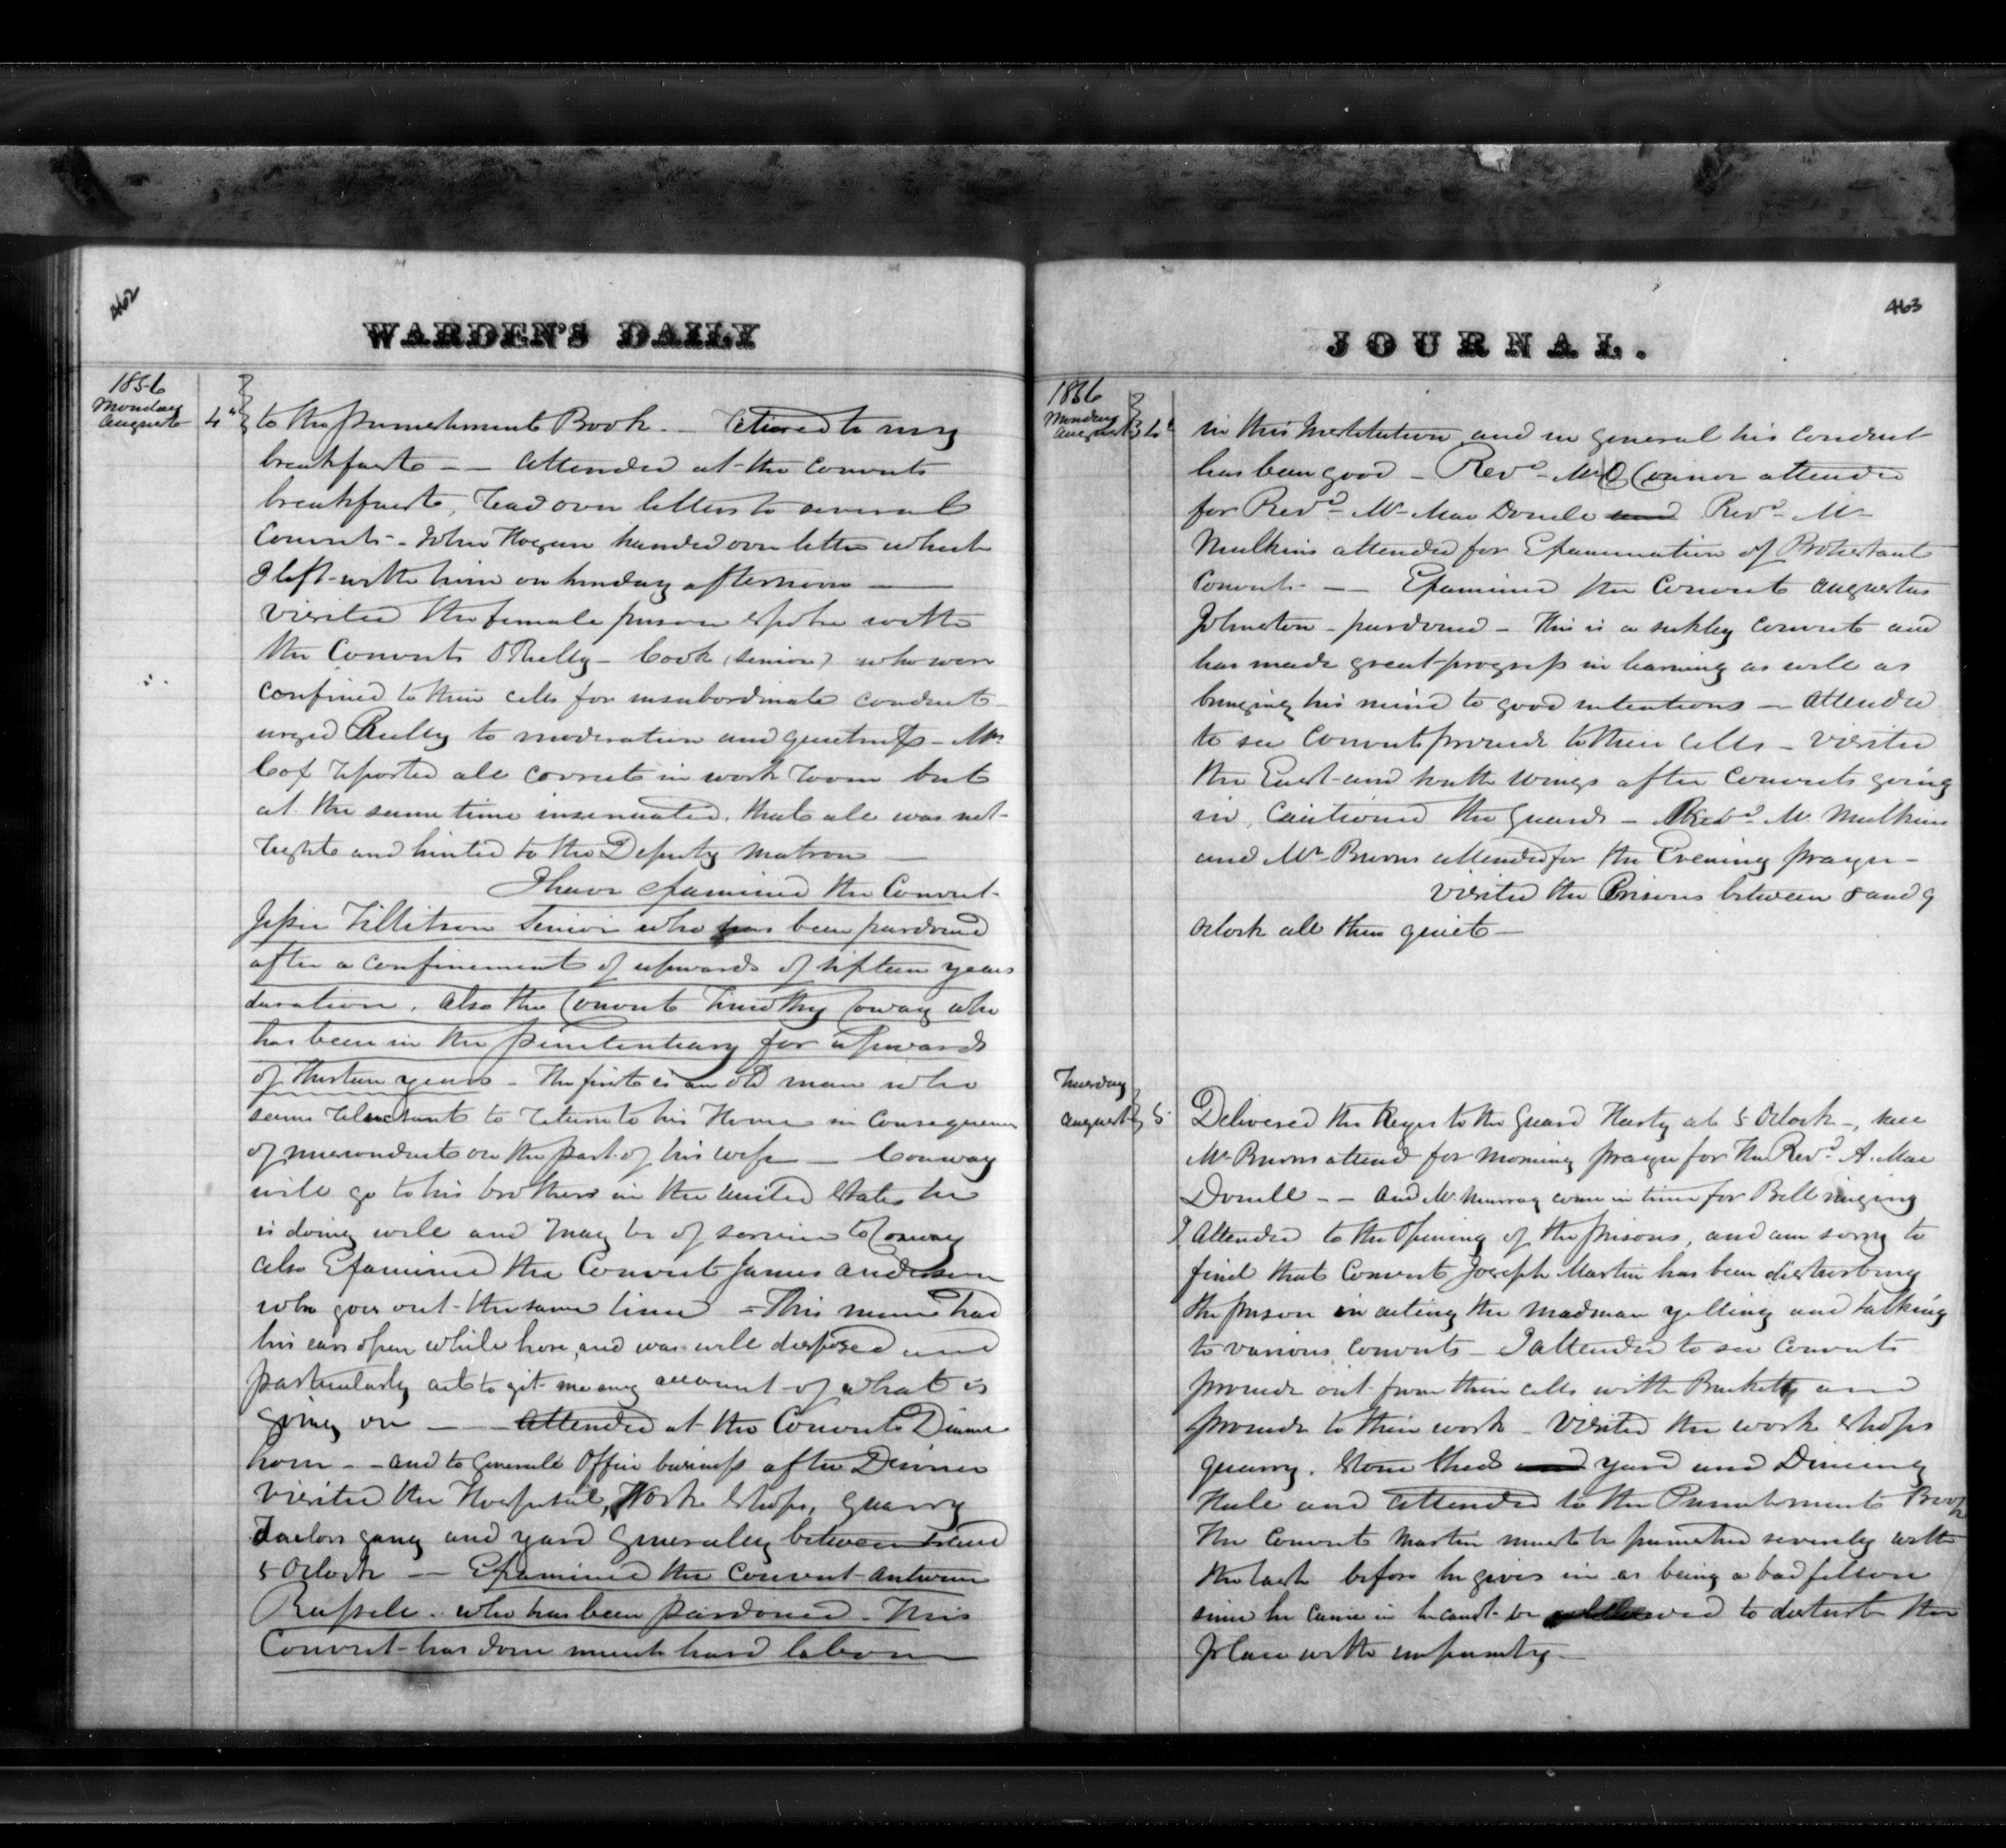 462
WARDEN'S DAILY
1856
Monday
August 4th to the punishment Book — Retired to my
breakfast — — attended at the convicts
breakfast, read over letters to several
Convicts - John Hogan handed over letter which
I left with him on Sunday afternoon —
Visited the female prison & spoke with
the Convicts O'Reilly - Cook (Senior) who were
confined to their cells for insubordinate conduct -
urged Reilly to moderation and quietness - Mrs
Cox reported all correct in work room but
at the same time insinuated that all was not
right and hinted to the Deputy Matron —
I have examined the Convict
Jesse Tillitson Senior who has been pardoned
after a confinement of upwards of fifteen years
duration. Also the Convict Timothy Conway who
has been in the penitentiary for upwards
of thirteen years - The first is an old man who
seems reluctant to return to his Home in Consequence
of misconduct on the part of his wife — Conway
will go to his brothers in the United States he
is doing well and may be of service to Conway
also Examined the Convict James Anderson
who goes out the same time - This man had
his ears open while here, and was well disposed and
particularly as to git me any account of what is
going on — attended at the Convicts Dinner
hour - - and to General Office business after Dinner
Visited the Hospital, Work Shops, Quarry
Tailors gang and yard generally between and
5 Oclock — Examined the Convict Antwine
Russell - who has been pardoned - This
Convict has done much hard labour
463
JOURNAL.
1856
Monday
August 4th in this Institution and in general his conduct
has been good - Revd Mr O Connor attended
for Revd Mr Mac Donell and Revd Mr
Mulkins attended for Examination of Protestant
Convicts — — Examined the Convict Augustus
Johnston - pardoned - This is a sickly convict and
has made great progress in learning as well as
bringing his mind to good intentions — attended
to see Convicts proceed to their cells - visited
the East and South wings after Convicts going
in, Cautioned the guards - Revd Mr Mulkins
and Mr Burns attended for the Evening prayer -
Visited the Prisons between 8 and 9
Oclock all then quiet —
Tuesday
August 5 Delivered the Keys to the Guard Hasty at 5 Oclock -, see
Mr Burns attend for morning prayer for the Revd A. Mac
Donell - - and Mr Murray come in time for Bell ringing
I Attended to the Opening of the prisons, and am sorry to
find that Convict Joseph Martin has been disturbing
the prison in acting the madman yelling and talking
to various convicts - I attended to see Convicts
proceed out from their cells with Bucketts and
proceed to their work - Visited the work shops
quarry, Stone Sheds and yard and Dining
Hall and attended to the Punishment Book
The Convict Martin must be punished severely with
the lash before he gives in as being a bad fellow
since he came in he cant be allowed to disturb the
place with impunity —